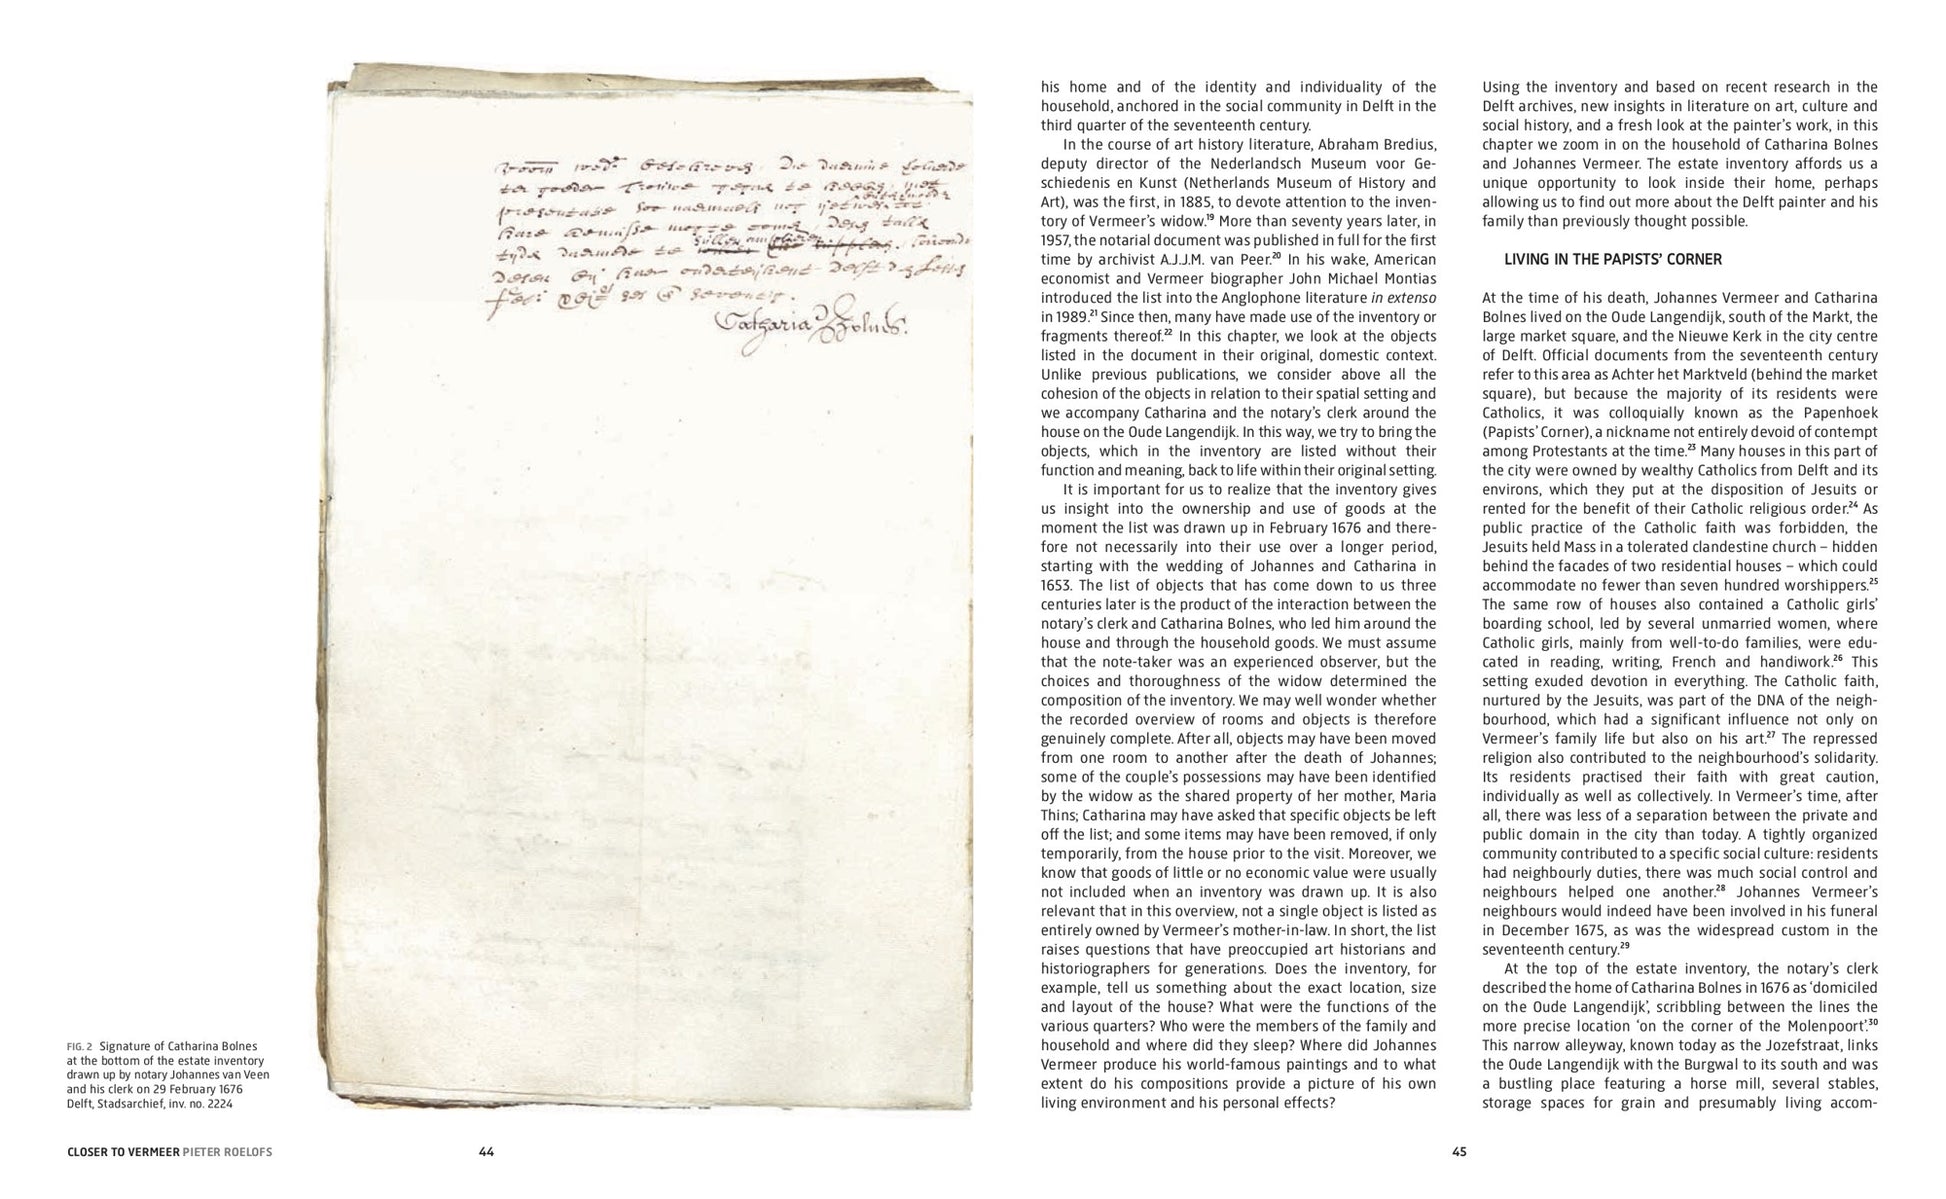 Catharia Bolnes.
FIG. 2 Signature of Catharina Bolnes
at the bottom of the estate inventory
drawn up by notary Johannes van Veen
and his clerk on 29 February 1676
Delft, Stadsarchief, inv. no. 2224
CLOSER TO VERMEER PIETER ROELOFS
44
his home and of the identity and individuality of the
household, anchored in the social community in Delft in the
third quarter of the seventeenth century.
In the course of art history literature, Abraham Bredius,
deputy director of the Nederlandsch Museum voor Ge-
schiedenis en Kunst (Netherlands Museum of History and
Art), was the first, in 1885, to devote attention to the inven-
tory of Vermeer's widow.¹⁹ More than seventy years later, in
1957, the notarial document was published in full for the first
time by archivist A.J.J.M. van Peer.²⁰ In his wake, American
economist and Vermeer biographer John Michael Montias
introduced the list into the Anglophone literature in extenso
in 1989.²¹ Since then, many have made use of the inventory or
fragments thereof.²² In this chapter, we look at the objects
listed in the document in their original, domestic context.
Unlike previous publications, we consider above all the
cohesion of the objects in relation to their spatial setting and
we accompany Catharina and the notary's clerk around the
house on the Oude Langendijk. In this way, we try to bring the
objects, which in the inventory are listed without their
function and meaning, back to life within their original setting.
It is important for us to realize that the inventory gives
us insight into the ownership and use of goods at the
moment the list was drawn up in February 1676 and there-
fore not necessarily into their use over a longer period,
starting with the wedding of Johannes and Catharina in
1653. The list of objects that has come down to us three
centuries later is the product of the interaction between the
notary's clerk and Catharina Bolnes, who led him around the
house and through the household goods. We must assume
that the note-taker was an experienced observer, but the
choices and thoroughness of the widow determined the
composition of the inventory. We may well wonder whether
the recorded overview of rooms and objects is therefore
genuinely complete. After all, objects may have been moved
from one room to another after the death of Johannes;
some of the couple's possessions may have been identified
by the widow as the shared property of her mother, Maria
Thins; Catharina may have asked that specific objects be left
off the list; and some items may have been removed, if only
temporarily, from the house prior to the visit. Moreover, we
know that goods of little or no economic value were usually
not included when an inventory was drawn up. It is also
relevant that in this overview, not a single object is listed as
entirely owned by Vermeer's mother-in-law. In short, the list
raises questions that have preoccupied art historians and
historiographers for generations. Does the inventory, for
example, tell us something about the exact location, size
and layout of the house? What were the functions of the
various quarters? Who were the members of the family and
household and where did they sleep? Where did Johannes
Vermeer produce his world-famous paintings and to what
extent do his compositions provide a picture of his own
living environment and his personal effects?
Using the inventory and based on recent research in the
Delft archives, new insights in literature on art, culture and
social history, and a fresh look at the painter's work, in this
chapter we zoom in on the household of Catharina Bolnes
and Johannes Vermeer. The estate inventory affords us a
unique opportunity to look inside their home, perhaps
allowing us to find out more about the Delft painter and his
family than previously thought possible.
LIVING IN THE PAPISTS' CORNER
At the time of his death, Johannes Vermeer and Catharina
Bolnes lived on the Oude Langendijk, south of the Markt, the
large market square, and the Nieuwe Kerk in the city centre
of Delft. Official documents from the seventeenth century
refer to this area as Achter het Marktveld (behind the market
square), but because the majority of its residents were
Catholics, it was colloquially known as the Papenhoek
(Papists' Corner), a nickname not entirely devoid of contempt
among Protestants at the time.²³ Many houses in this part of
the city were owned by wealthy Catholics from Delft and its
environs, which they put at the disposition of Jesuits or
rented for the benefit of their Catholic religious order.²⁴ As
public practice of the Catholic faith was forbidden, the
Jesuits held Mass in a tolerated clandestine church – hidden
behind the facades of two residential houses – which could
accommodate no fewer than seven hundred worshippers.²⁵
The same row of houses also contained a Catholic girls'
boarding school, led by several unmarried women, where
Catholic girls, mainly from well-to-do families, were edu-
cated in reading, writing, French and handiwork.²⁶ This
setting exuded devotion in everything. The Catholic faith,
nurtured by the Jesuits, was part of the DNA of the neigh-
bourhood, which had a significant influence not only on
Vermeer's family life but also on his art.²⁷ The repressed
religion also contributed to the neighbourhood's solidarity.
Its residents practised their faith with great caution,
individually as well as collectively. In Vermeer's time, after
all, there was less of a separation between the private and
public domain in the city than today. A tightly organized
community contributed to a specific social culture: residents
had neighbourly duties, there was much social control and
neighbours helped one another.²⁸ Johannes Vermeer's
neighbours would indeed have been involved in his funeral
in December 1675, as was the widespread custom in the
seventeenth century.²⁹
At the top of the estate inventory, the notary's clerk
described the home of Catharina Bolnes in 1676 as 'domiciled
on the Oude Langendijk', scribbling between the lines the
more precise location 'on the corner of the Molenpoort'.³⁰
This narrow alleyway, known today as the Jozefstraat, links
the Oude Langendijk with the Burgwal to its south and was
a bustling place featuring a horse mill, several stables,
storage spaces for grain and presumably living accom-
45